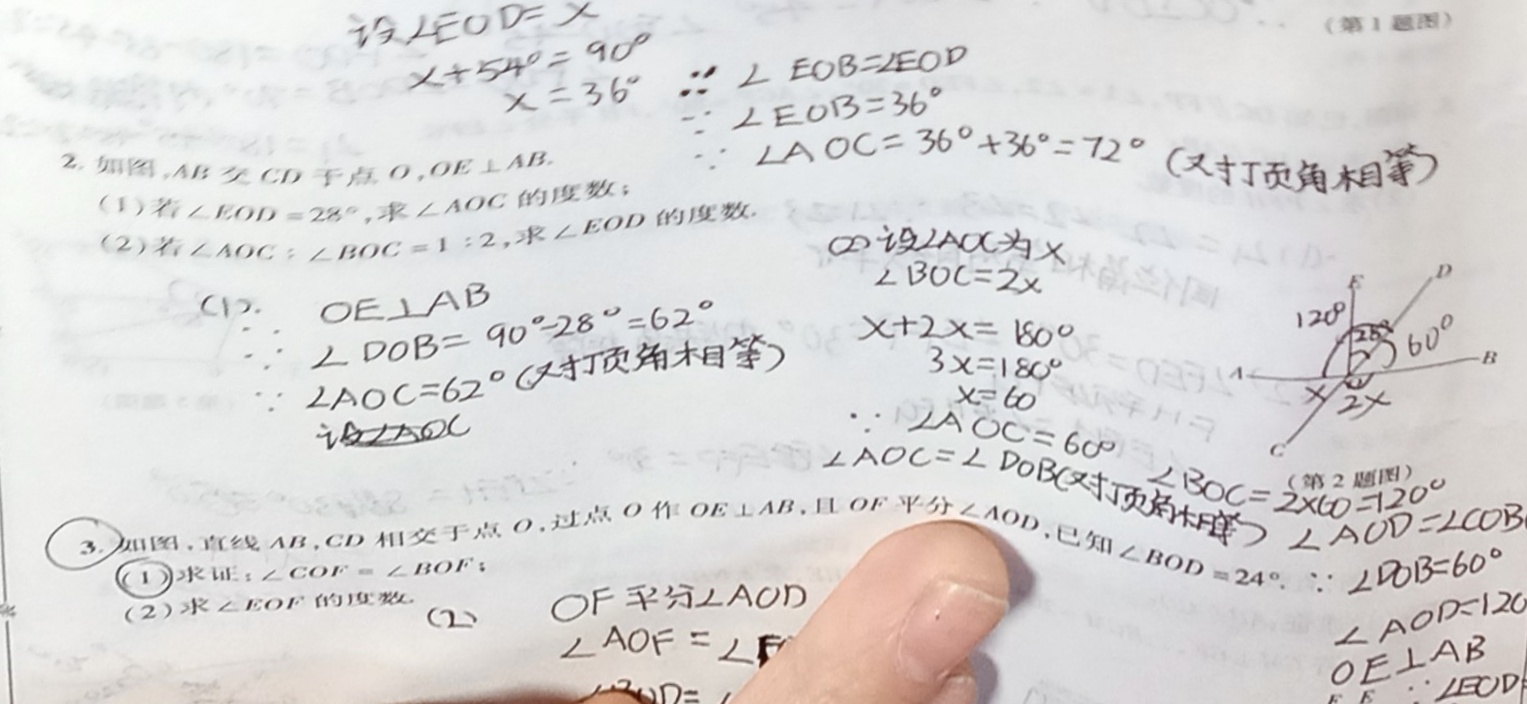 设∠EOD=x
(第1题图)
x+54°=90°
x=36°
∵ ∠EOB=∠EOD
∵ ∠EOB=36°
∵ ∠AOC=36°+36°=72°(对顶角相等)
2. 如图,AB交CD于点O,OE⊥AB.
(1)若∠EOD=28°,求∠AOC的度数;
(2)若∠AOC:∠BOC=1:2,求∠EOD的度数.
(1). OE⊥AB
∵ ∠DOB=90°-28°=62°
∵ ∠AOC=62°(对顶角相等)
设∠AOC
(2)设∠AOC为x
∠BOC=2x
x+2x=180°
3x=180°
x=60
∴ ∠AOC=60°
∠BOC=2×60=120°
∠AOC=∠DOB(对顶角相等)
∠AOD=∠COB
∵ ∠DOB=60°
∠AOD=120
OE⊥AB
∵ ∠EOD
E
D
120°
28°
60°
A
B
x
2x
C
(第2题图)
3. 如图,直线AB,CD相交于点O,过点O作OE⊥AB,且OF平分∠AOD,已知∠BOD=24°.
(1)求证:∠COF=∠BOF;
(2)求∠EOF的度数.
(2) OF平分∠AOD
∠AOF=∠